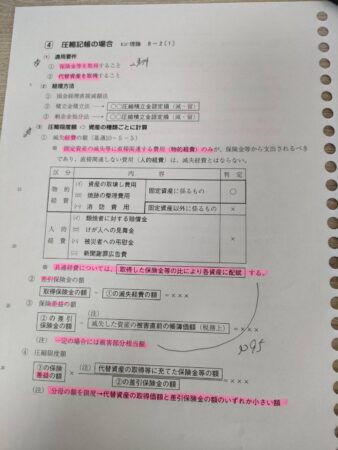 ④ 圧縮記帳の場合 理論 8－2(1)
(1) 適用要件
① 保険金等を取得すること
② 代替資産を取得すること
(2) 経理方法
① 損金経理直接減額法
② 積立金積立法 → ○○圧縮積立金認定損（減・留）
③ 剰余金処分法 → ○○圧縮積立金認定損（減・留）
(3) 圧縮限度額 ⇨ 資産の種類ごとに計算
① 滅失経費の額（基通10－5－5）
固定資産の滅失等に直接関連する費用（物的経費）のみが、保険金等から支出されるべき
であり、直接関連しない費用（人的経費）は、滅失経費とはならない。
区分 内容 判定
物的経費 (イ) 資産の取壊し費用 固定資産に係るもの ○
(ロ) 焼跡の整理費用
(ハ) 消防費用 固定資産以外に係るもの ×
人的経費 (イ) 類焼者に対する賠償金 ×
(ロ) けが人への見舞金
(ハ) 被災者への弔慰金
(ニ) 新聞謝罪広告費
共通経費については、取得した保険金等の比により各資産に配賦する。
② 差引保険金の額
取得保険金の額 － ①の滅失経費の額 ＝×××
③ 保険差益の額
②の差引保険金の額 － （注）滅失した資産の被害直前の帳簿価額（税務上） ＝×××
（注） 一定の場合には被害部分相当額
④ 圧縮限度額
①の保険差益の額 × 代替資産の取得等に充てた保険金等の額（注） / ②の差引保険金の額 ＝×××
（注） 分母の額を限度→代替資産の取得価額と差引保険金の額のいずれか小さい額